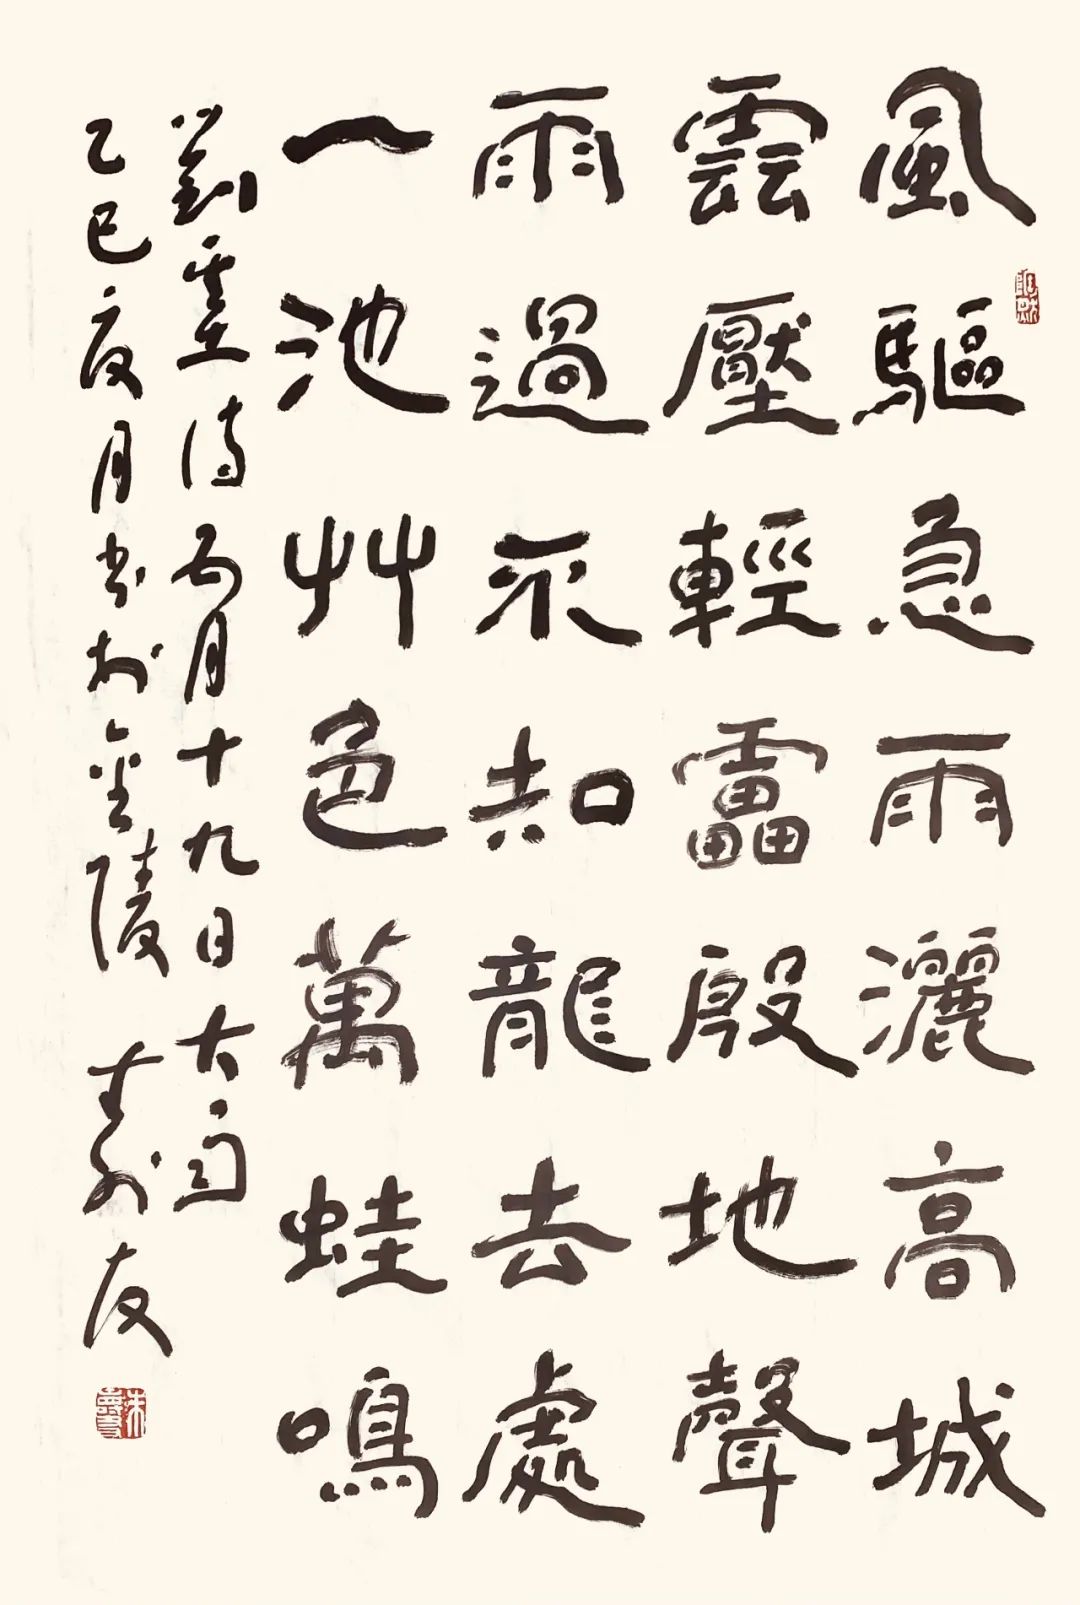 風驅急雨灑高城
雲壓輕靁殷地聲
雨過不知龍去處
一池艸色萬蛙鳴
劉基詩五月十九日大雨
乙巳夏月书於金陵 壽友